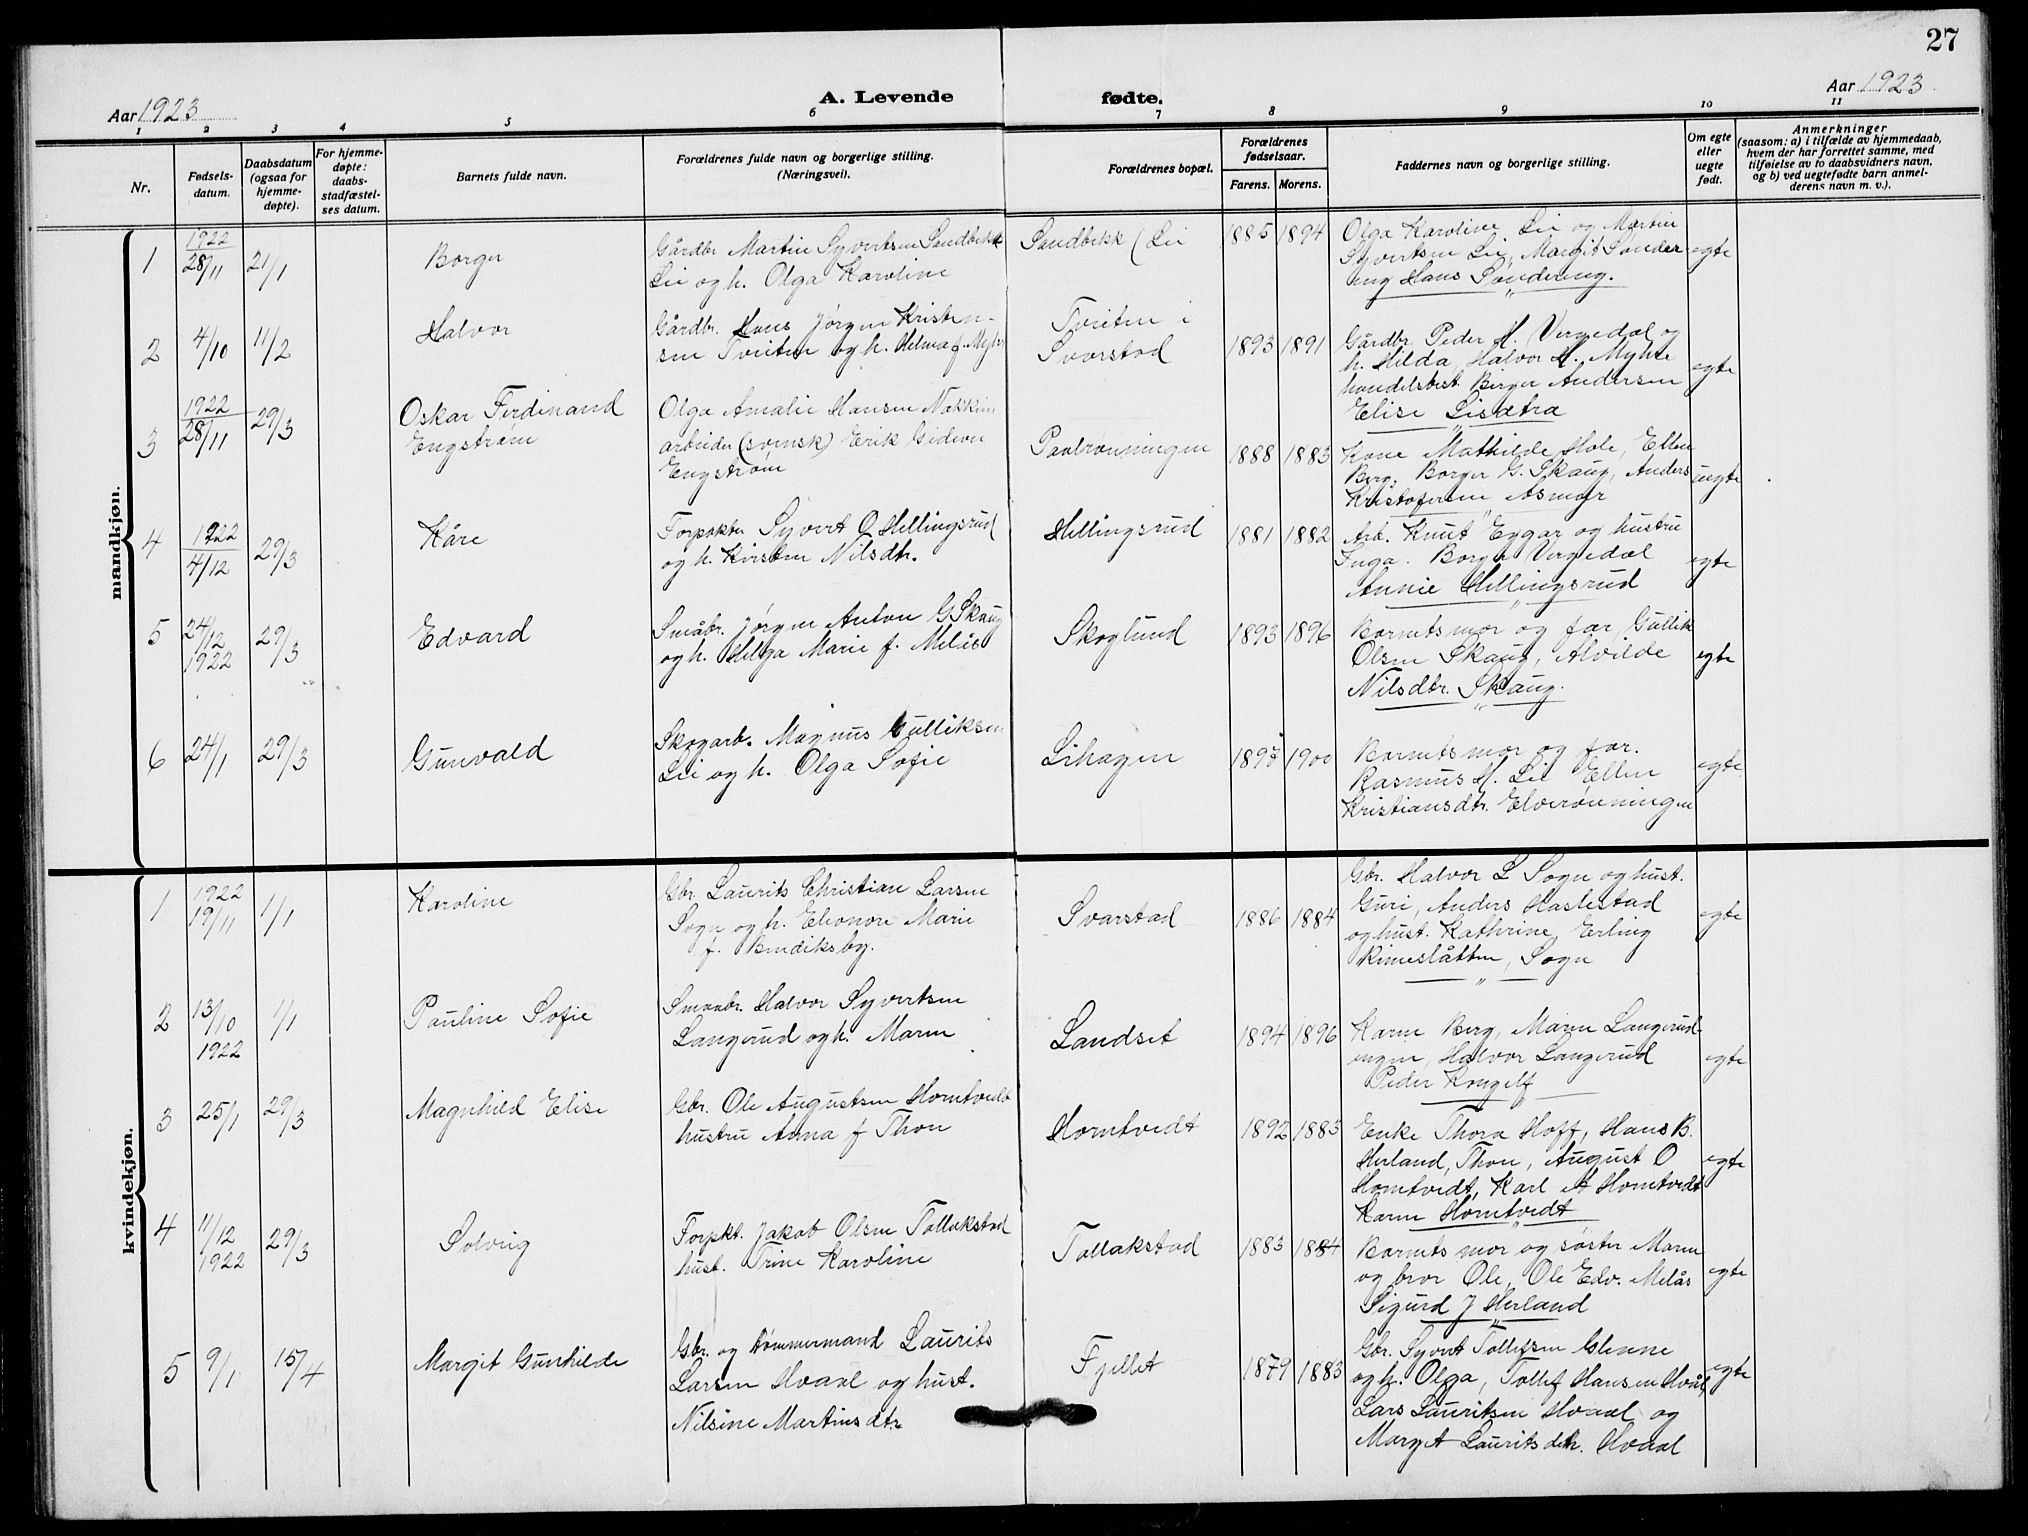 27
Aar 1923
A. Levende
fødte.
Aar 1923
1 2 3 4 5 6 7 8 9 10 11
Nr.
Fødsels-
datum.
Daabsdatum
(ogsaa for
hjemme-
døpte).
For hjemme-
døpte:
daabs-
stadfæstel-
ses datum.
Barnets fulde navn.
Forældrenes fulde navn og borgerlige stilling.
(Næringsvei).
Forældrenes bopæl.
Forældrenes
fødselsaar.
Farens. Morens.
Faddernes navn og borgerlige stilling.
Om egte
eller
uegte
født.
Anmerkninger
(saasom: a) i tilfælde av hjemmedaab,
hvem der har forrettet samme, med
tilføielse av to daabsvidners navn,
og b) ved uegtefødte barn anmel-
derens navn m. v.).
mandkjøn.
1
1922
28/11
21/1
Borger
Gårdbr Martin Syvertsen Sandbekk
Lie og h. Olga Karoline
Sandbekk (Lie
1885 1894
Olga Karoline Lie og Martin
Syvertsen Lie, Margit Sønder
eng Hans Søndereng.
egte
2
4/10
11/2
Halvor
Gårdbr. Hans Jørgen Kristen-
sen Tveiten og h. Helma f. Myhre
Tveiten i
Svarstad
1893 1891
Gårdbr. Peder H. Vergedal og
h. Hilda, Halvor H. Myhre
handelsbest. Birger Andersen
Elise Lisætra
egte
3
1922
28/11
29/3
Oskar Ferdinand
Engstrøm
Olga Amalie Hansen
arbeider (svensk) Erik Gideon
Engstrøm
Paulrønningen
1888 1883
Kone Mathilde Hole, Ellen
Berg, Borger G. Skaug, Anders
Kristofersen Asmør
uegte
4
1922
4/12
29/3
Kåre
Forpakter Syvert O Hellingsrud
og h. Kirsten Nilsdtr.
Hellingsrud
1881 1882
Arb. Knut Eggar og hustru
Inga. Borger Vergedal
Annie Hellingsrud
egte
5
24/12
1922
29/3
Edvard
Småbr. Jørgen Anton G Skaug
og h. Helga Marie f. Melås
Skoglund
1893 1896
Barnets mor og far Gullik
Olsen Skaug, Alvilde
Nilsdtr. Skaug.
egte
6
24/1
29/3
Gunvald
Skogarb. Magnus Gulliksen
Lie og h. Olga Sofie
Lihagen
1897 1900
Barnets mor og far.
Rasmus H. Lie Ellen
Kristiansdtr. Elverønningen
egte
kvindekjøn.
1
1922
19/11
1/1
Karoline
Gbr. Laurits Christian Larsen
Sogn og h. Eleonore Marie
f. Bendiksby.
Svarstad
1886 1884
Gbr. Halvor L Sogn og hust.
Guri, Anders Haslestad
og hust. Kathrine, Erling
Rimeslåtten, Sogn
egte
2
13/10
1922
1/1
Pauline Sofie
Smaabr. Halvor Syvertsen
Langerud og h. Maren
Landset
1894 1896
Karen Berg, Maren Langerud-
engen, Halvor Langerud
Peder Kongelf
egte
3
25/1
29/3
Magnhild Elise
Gbr. Ole Augustsen Homtvedt
hustru Anna f Thon
Homtvedt
1892 1883
Enke Thora Hoff, Hans B.
Herland, Thon, August O
Homtvedt, Karl A Homtvedt
Karen Homtvedt
egte
4
11/12
1922
29/3
Solveig
Forpkt. Jakob Olsen Tollakstad
hust. Trine Karoline
Tollakstad
1883 1884
Barnets mor og søster Maren
og bror Ole, Ole Edv. Melås
Sigurd J Herland
egte
5
9/1
15/4
Margit Gunhilde
Gbr. og tømmermand Laurits
Larsen Hvaal og hust.
Nilsine Martinsdtr.
Fjellet
1879 1883
Gbr. Syvert Tollefsen Glenne
og h. Olga, Tollef Hansen Hvål
Lars Lauritsen Hvaal og
Margit Lauritsdtr. Hvaal
egte